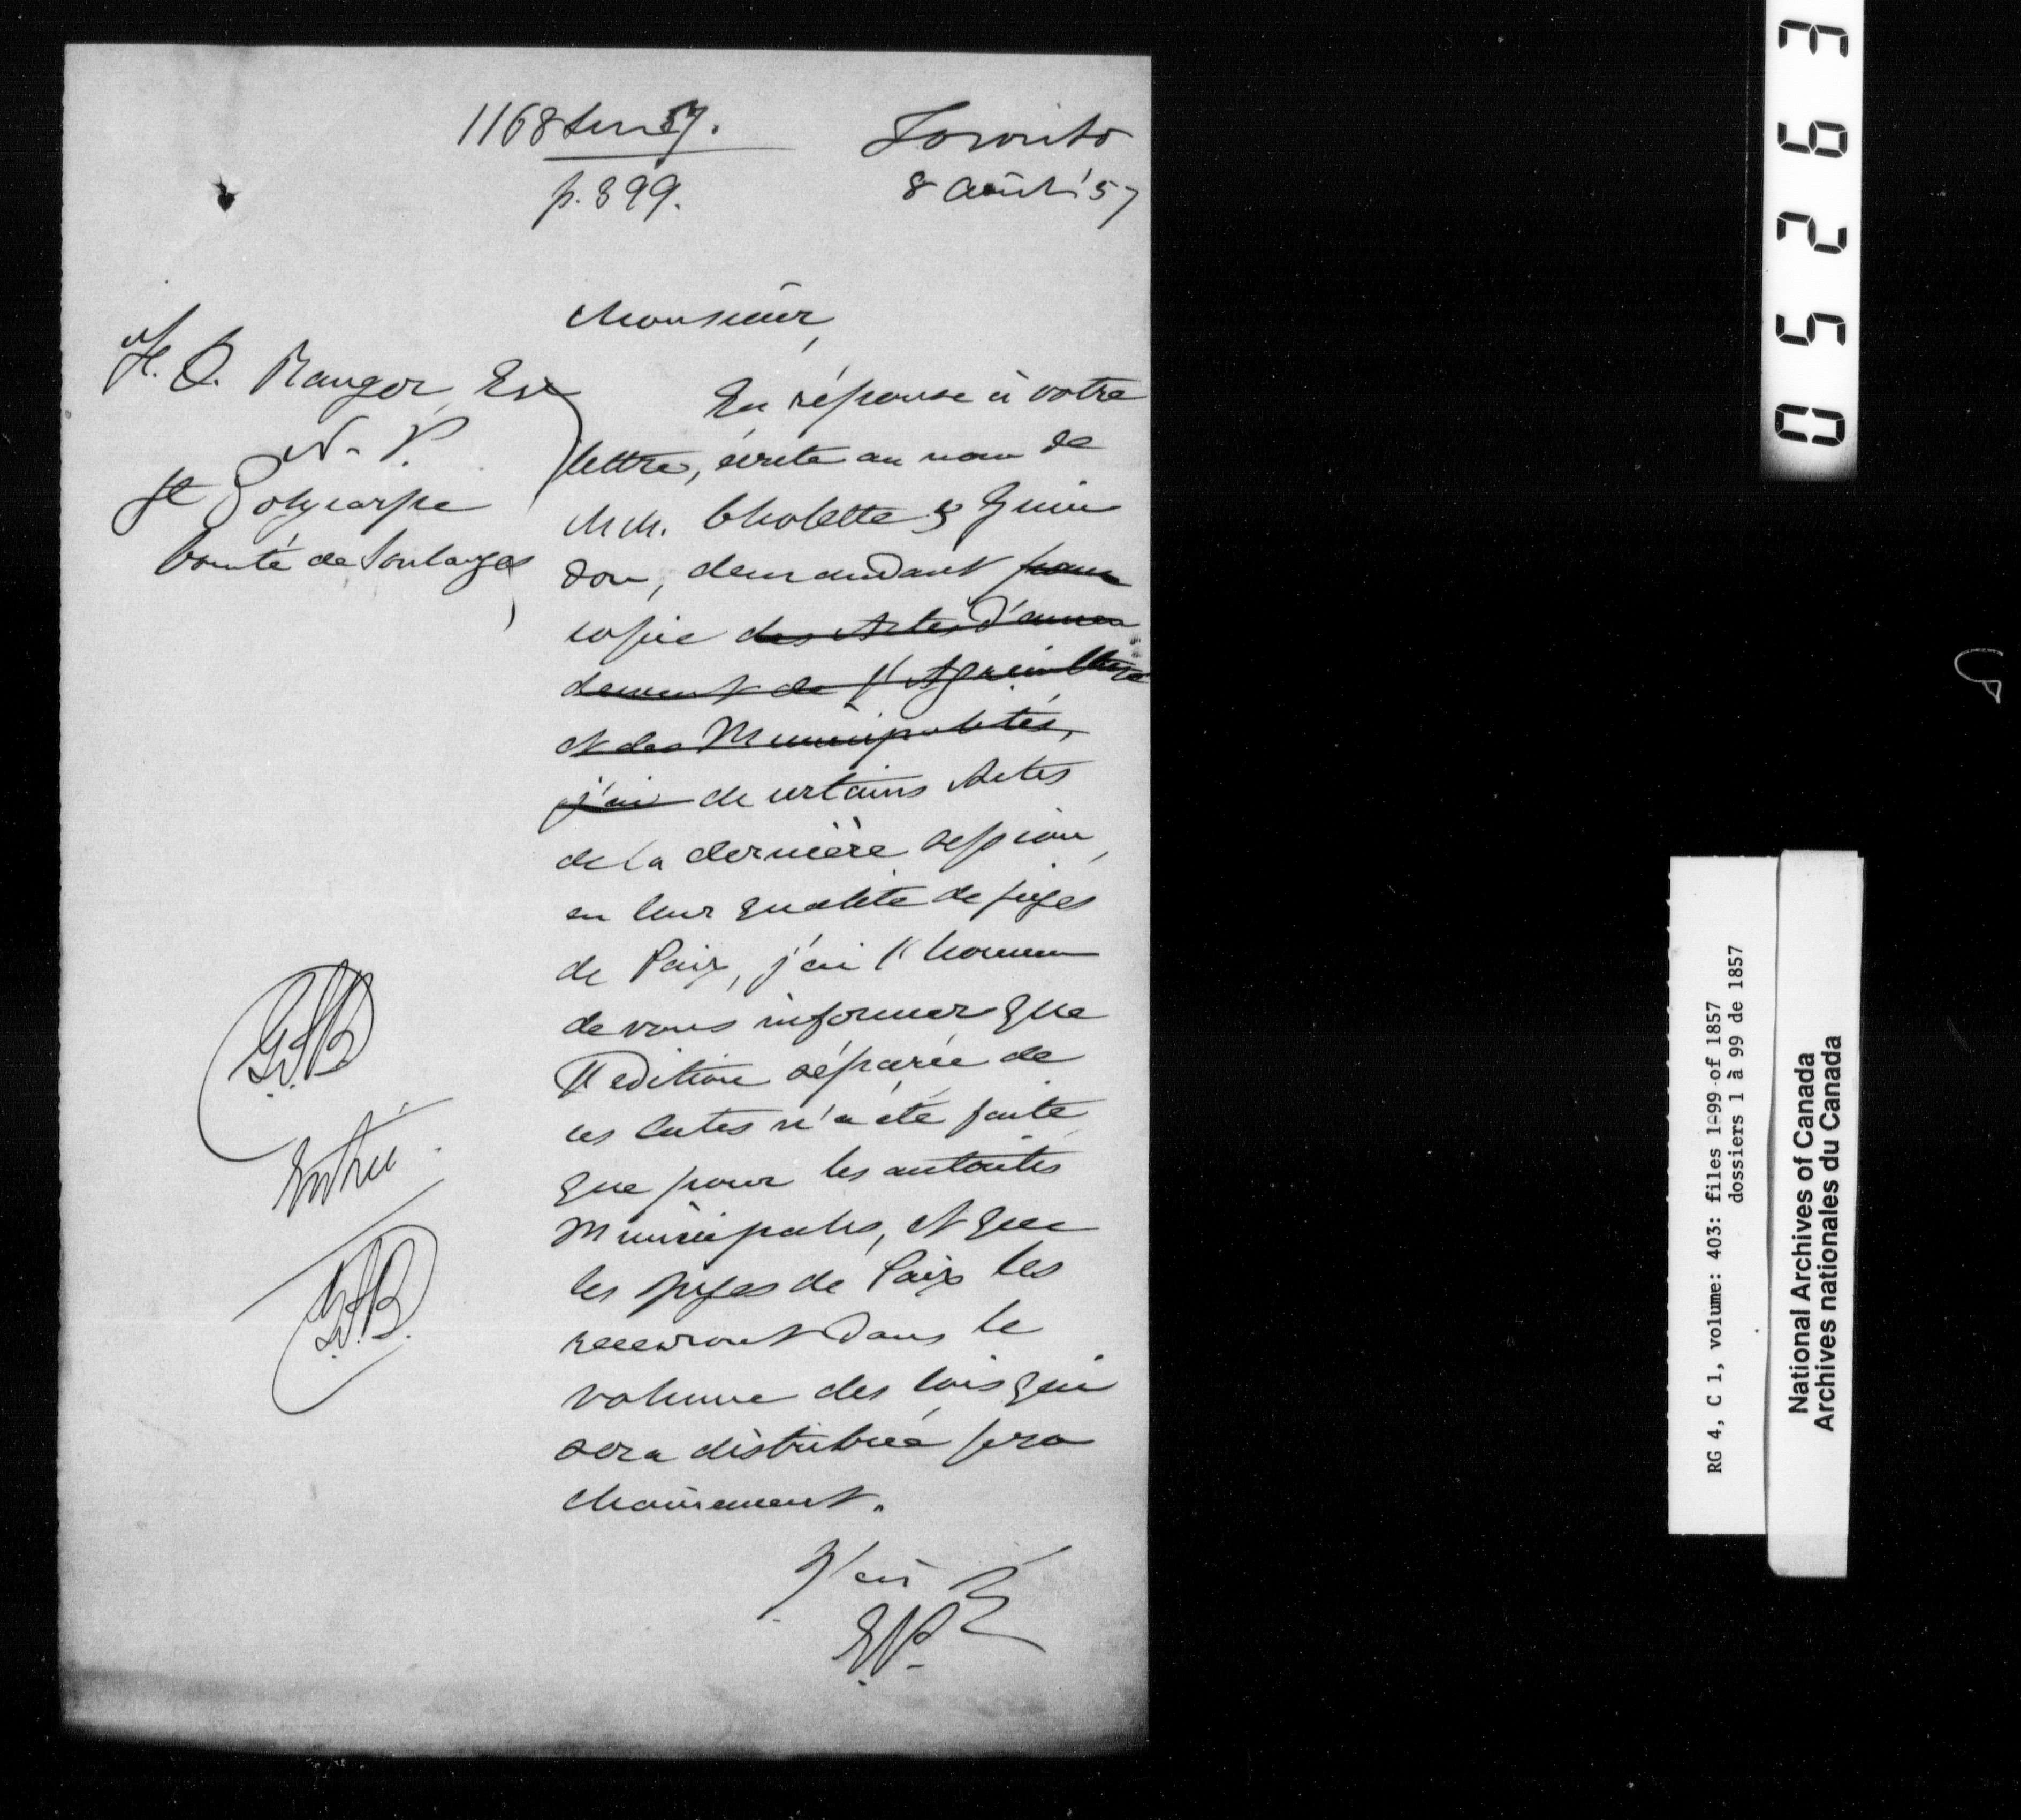 1168 57.
p. 399.
Toronto
8 Août '57
Monsieur,
Ranger Esr
N. P.
St Polycarpe
Comté de Soulanges
En réponse à votre
lettre, écrite au nom de
MM. Cholette & Guin
don, demandant
copie des Actes d'amen
dement de l'Agriculture
et des Municipalités,
j'ai de certains Actes
de la dernière session,
en leur qualité de juges
de Paix, j'ai l'honneur
de vous informer que
l'edition séparée de
ces Actes n'a été faite
que pour les autorités
Municipales, et que
les juges de Paix les
recevront dans le
volume des lois qui
sera distribué pro
chainement.
J'ai &
E.P.
Entré
05263
RG 4, C 1, volume: 403: files 1-99 of 1857
dossiers 1 à 99 de 1857
National Archives of Canada
Archives nationales du Canada